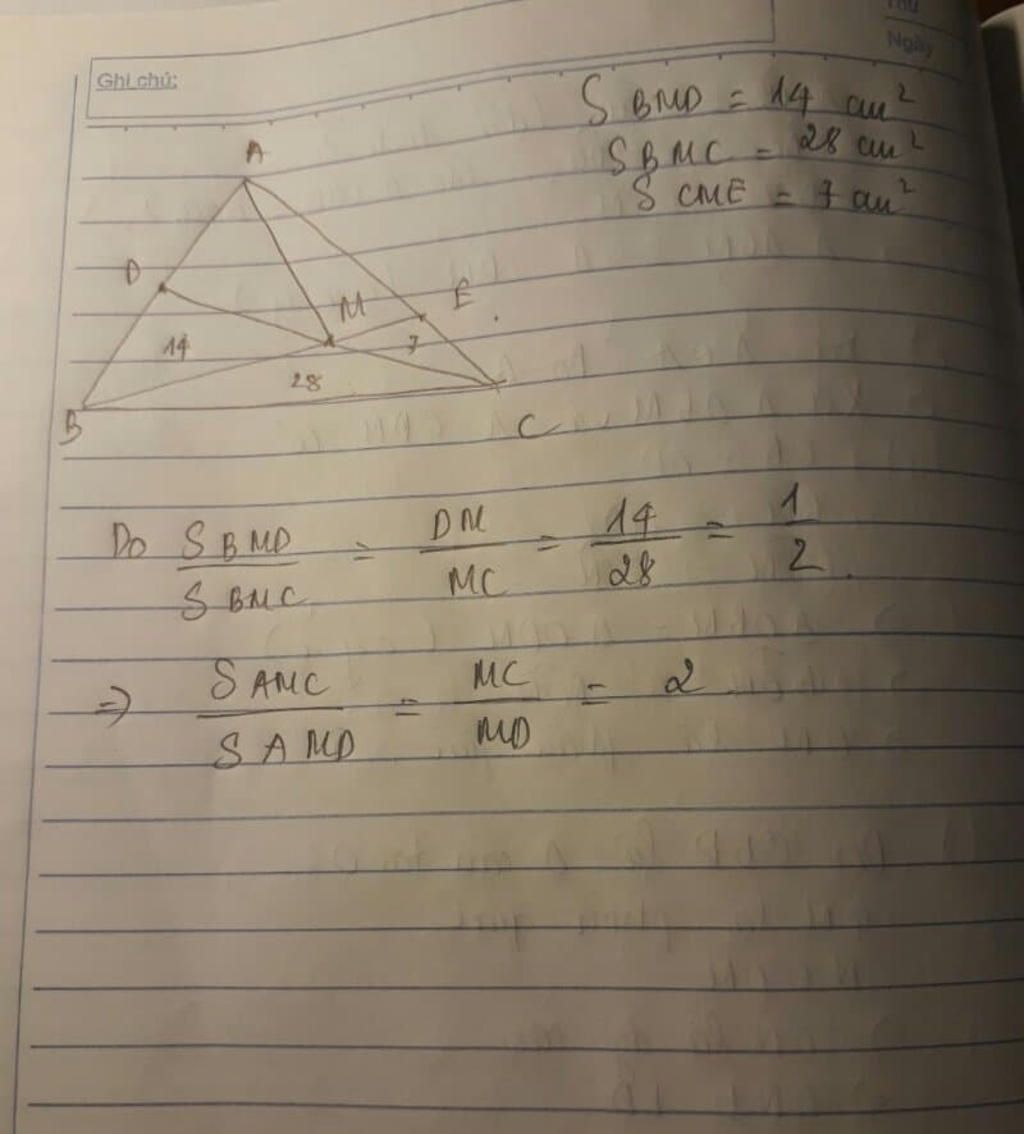 Thứ
Ngày
Ghi chú:
S BMD = 14 cm²
S BMC = 28 cm²
S CME = 7 cm²
A
D
M
E
14
7
28
B
C
Do S BMD / S BMC = DM / MC = 14 / 28 = 1 / 2.
=> S AMC / S AMD = MC / MD = 2